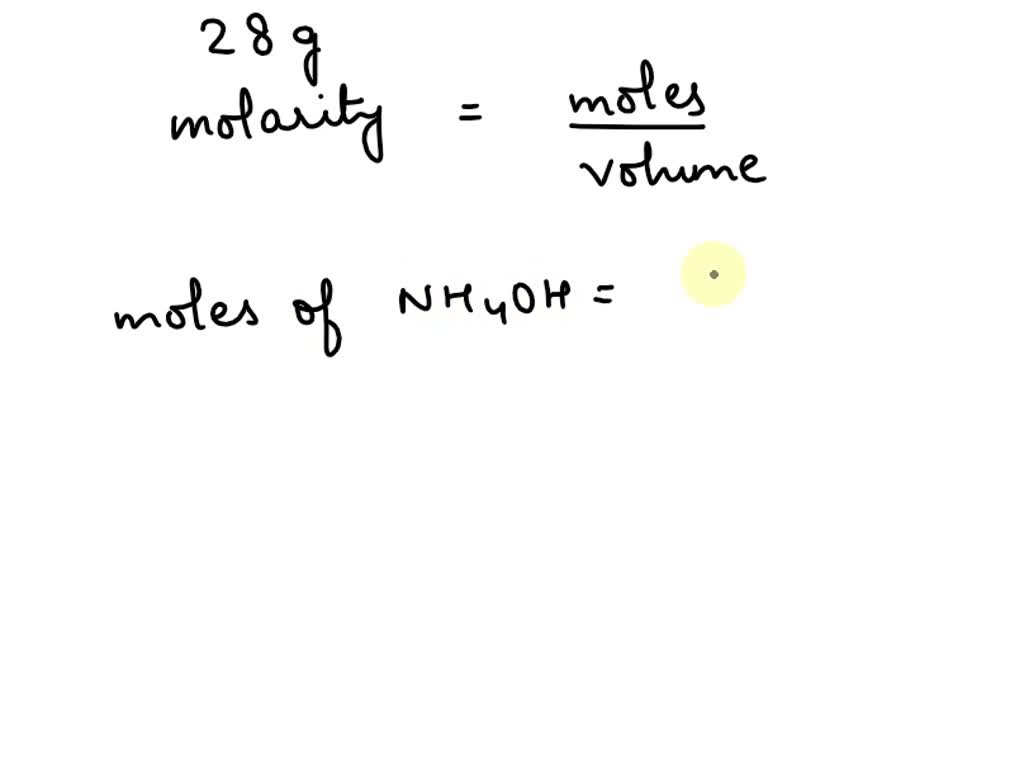 28 g
molarity = moles
volume
moles of NH4OH =